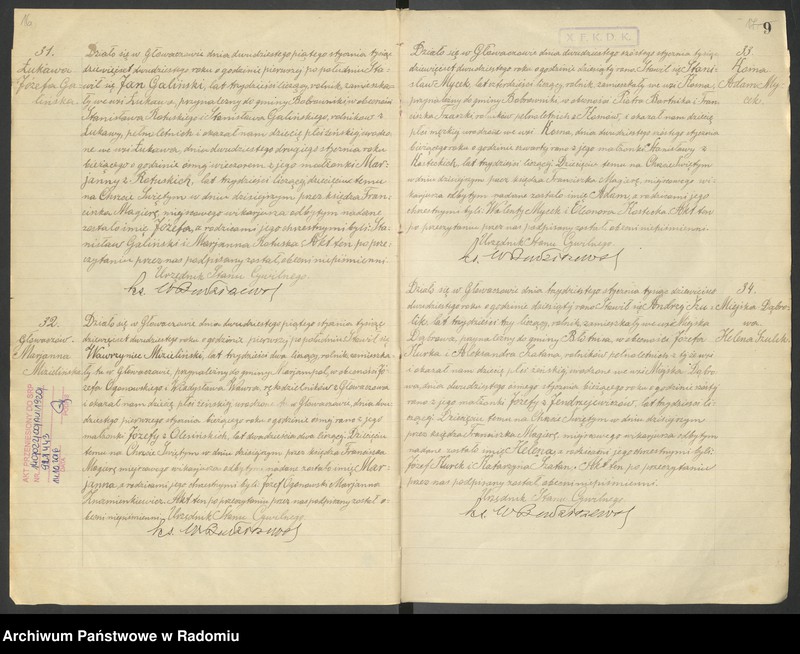 31.
Łukawa
Józefa Galińska.
Działo się w Głowaczowie dnia dwudziestego piątego stycznia tysiąc
dziewięćset dwudziestego roku o godzinie pierwszej po południu Sta-
wił się Jan Galiński, lat trzydzieści liczący, rolnik, zamieszka-
ły we wsi Łukawa, przynależnej do gminy Bobrowniki w obecności
Stanisława Ratuskiego i Stanisława Galińskiego, rolników z
Łukawy, pełnoletnich i okazał nam dziecię płci żeńskiej urodzo-
ne we wsi Łukawa, dnia dwudziestego drugiego stycznia roku
bieżącego o godzinie ósmej wieczorem z jego małżonki Mar-
janny z Ratuskich, lat trzydzieści liczącej, dziecięciu temu
na Chrzcie Świętym w dniu dzisiejszym przez księdza Fran-
ciszka Magierę, miejscowego wikarjusza odbytym nadane
zostało imię Józefa, a rodzicami jego chrzestnymi byli: Sta-
nisław Galiński i Marjanna Ratuska. Akt ten po prze-
czytaniu przez nas podpisany został, obecni niepiśmienni.
Urzędnik Stanu Cywilnego
32.
Głowaczów.
Marjanna
Działo się w Głowaczowie dnia dwudziestego piątego stycznia tysiąc
dziewięćset dwudziestego roku o godzinie pierwszej po południu Stawił się
Wawrzyniec lat trzydzieści dwa liczący, rolnik, zamieszka-
ły tu w Głowaczowie, przynależnym do gminy Marjampol, w obecności Jó-
zefa Ogonowskiego i Władysława z Głowaczowa
i okazał nam dziecię płci żeńskiej urodzone tu w Głowaczowie, dnia dwu-
dziestego pierwszego stycznia bieżącego roku o godzinie ósmej rano z jego
małżonki Józefy z Oleńskich, lat dwadzieścia dwa liczącej. Dziecięciu
temu na Chrzcie Świętym w dniu dzisiejszym przez księdza Franciszka
Magierę miejscowego wikarjusza odbytym nadane zostało imię Mar-
janna, a rodzicami jego chrzestnymi byli: Józef Ogonowski i Marjanna
Akt ten po przeczytaniu przez nas podpisany został, o-
becni niepiśmienni. Urzędnik Stanu Cywilnego
AKT PRZENIESIONY DO SRP
X.E.K.D.K.
9
33.
Adama My-
cek.
Działo się w Głowaczowie dnia dwudziestego szóstego stycznia tysiąc
dziewięćset dwudziestego roku o godzinie dziesiątej rano Stawił się Stani-
sław Mycek, lat czterdzieści liczący, rolnik, zamieszkały we wsi
przynależnej do gminy Bobrowniki, w obecności Piotra Bartnika i Fran-
ciszka rolników pełnoletnich z i okazał nam dziecię
płci męskiej urodzone we wsi dnia dwudziestego szóstego stycznia
bieżącego roku o godzinie czwartej rano z jego małżonki Stanisławy z
lat trzydzieści liczącej. Dziecięciu temu na Chrzcie Świętym
w dniu dzisiejszym przez księdza Franciszka Magierę, miejscowego wi-
karjusza odbytym nadane zostało imię Adam, a rodzicami jego
chrzestnymi byli: Walenty Mycek i Eleonora Akt ten
po przeczytaniu przez nas podpisany został, obecni niepiśmienni.
Urzędnik Stanu Cywilnego.
34.
Miejska Dąbro-
wa.
Helena
Działo się w Głowaczowie dnia trzydziestego stycznia tysiąc dziewięćset
dwudziestego roku o godzinie dziesiątej rano Stawił się Andrzej
lat trzydzieści trzy liczący, rolnik, zamieszkały we wsi Miejska
Dąbrowa, przynależnej do gminy w obecności Józefa
Kurka i Aleksandra rolników pełnoletnich z tej wsi
i okazał nam dziecię płci żeńskiej urodzone we wsi Miejska Dąbro-
wa, dnia dwudziestego ósmego stycznia bieżącego roku o godzinie szóstej
rano z jego małżonki Józefy z lat trzydzieści li-
czącej. Dziecięciu temu na Chrzcie Świętym w dniu dzisiejszym
przez księdza Franciszka Magierę, miejscowego wikarjusza odbytym
nadane zostało imię Helena, a rodzicami jego chrzestnymi byli:
Józef Kurek i Katarzyna Akt ten po przeczytaniu
przez nas podpisany został, obecni niepiśmienni.
Urzędnik Stanu Cywilnego.
Archiwum Państwowe w Radomiu